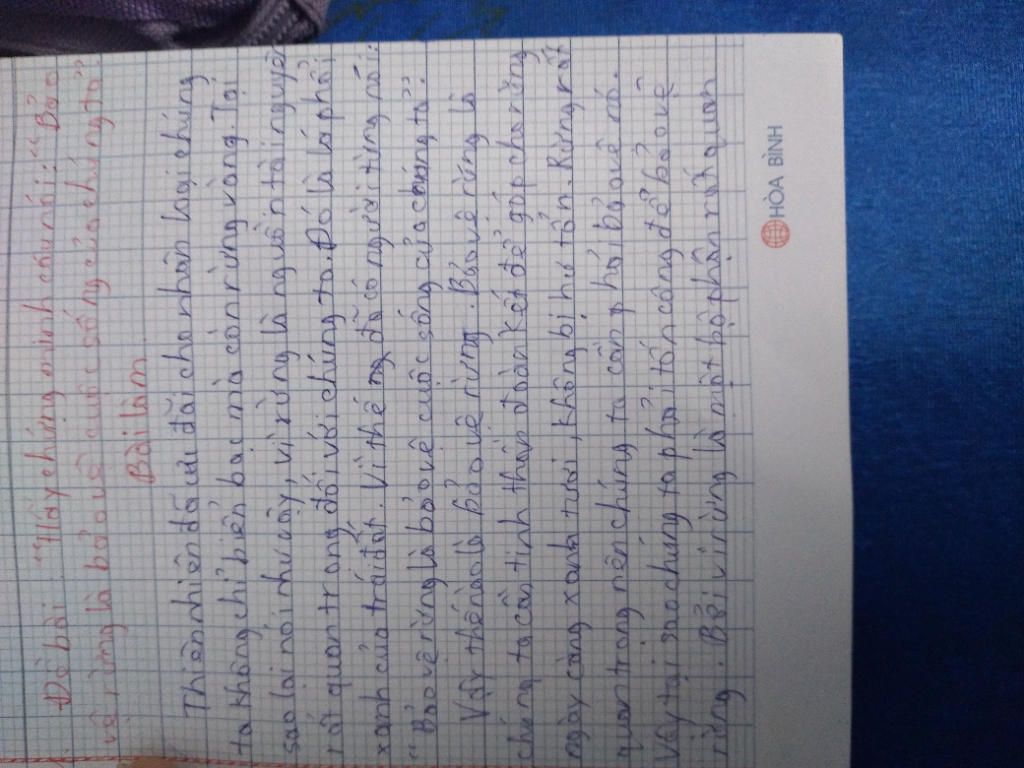 Đề bài: "Hãy chứng minh câu nói: "Bảo
vệ rừng là bảo vệ cuộc sống của chúng ta"
Bài làm
Thiên nhiên đã ưu đãi cho nhân loại chúng
ta không chỉ biển bạc mà còn rừng vàng. Tại
sao lại nói như vậy, vì rừng là nguồn tài nguyên
rất quan trọng đối với chúng ta. Đó là lá phổi
xanh của trái đất. Vì thế đã có người từng nói:
"Bảo vệ rừng là bảo vệ cuộc sống của chúng ta".
Vậy thế nào là bảo vệ rừng. Bảo vệ rừng là
chúng ta cần tinh thần đoàn kết để góp cho rừng
ngày càng xanh tươi, không bị hư tổn. Rừng rất
quan trọng nên chúng ta cần phải bảo vệ nó.
Vậy tại sao chúng ta phải tốn công để bảo vệ
rừng. Bởi vì rừng là một bộ phận rất quan
HÒA BÌNH